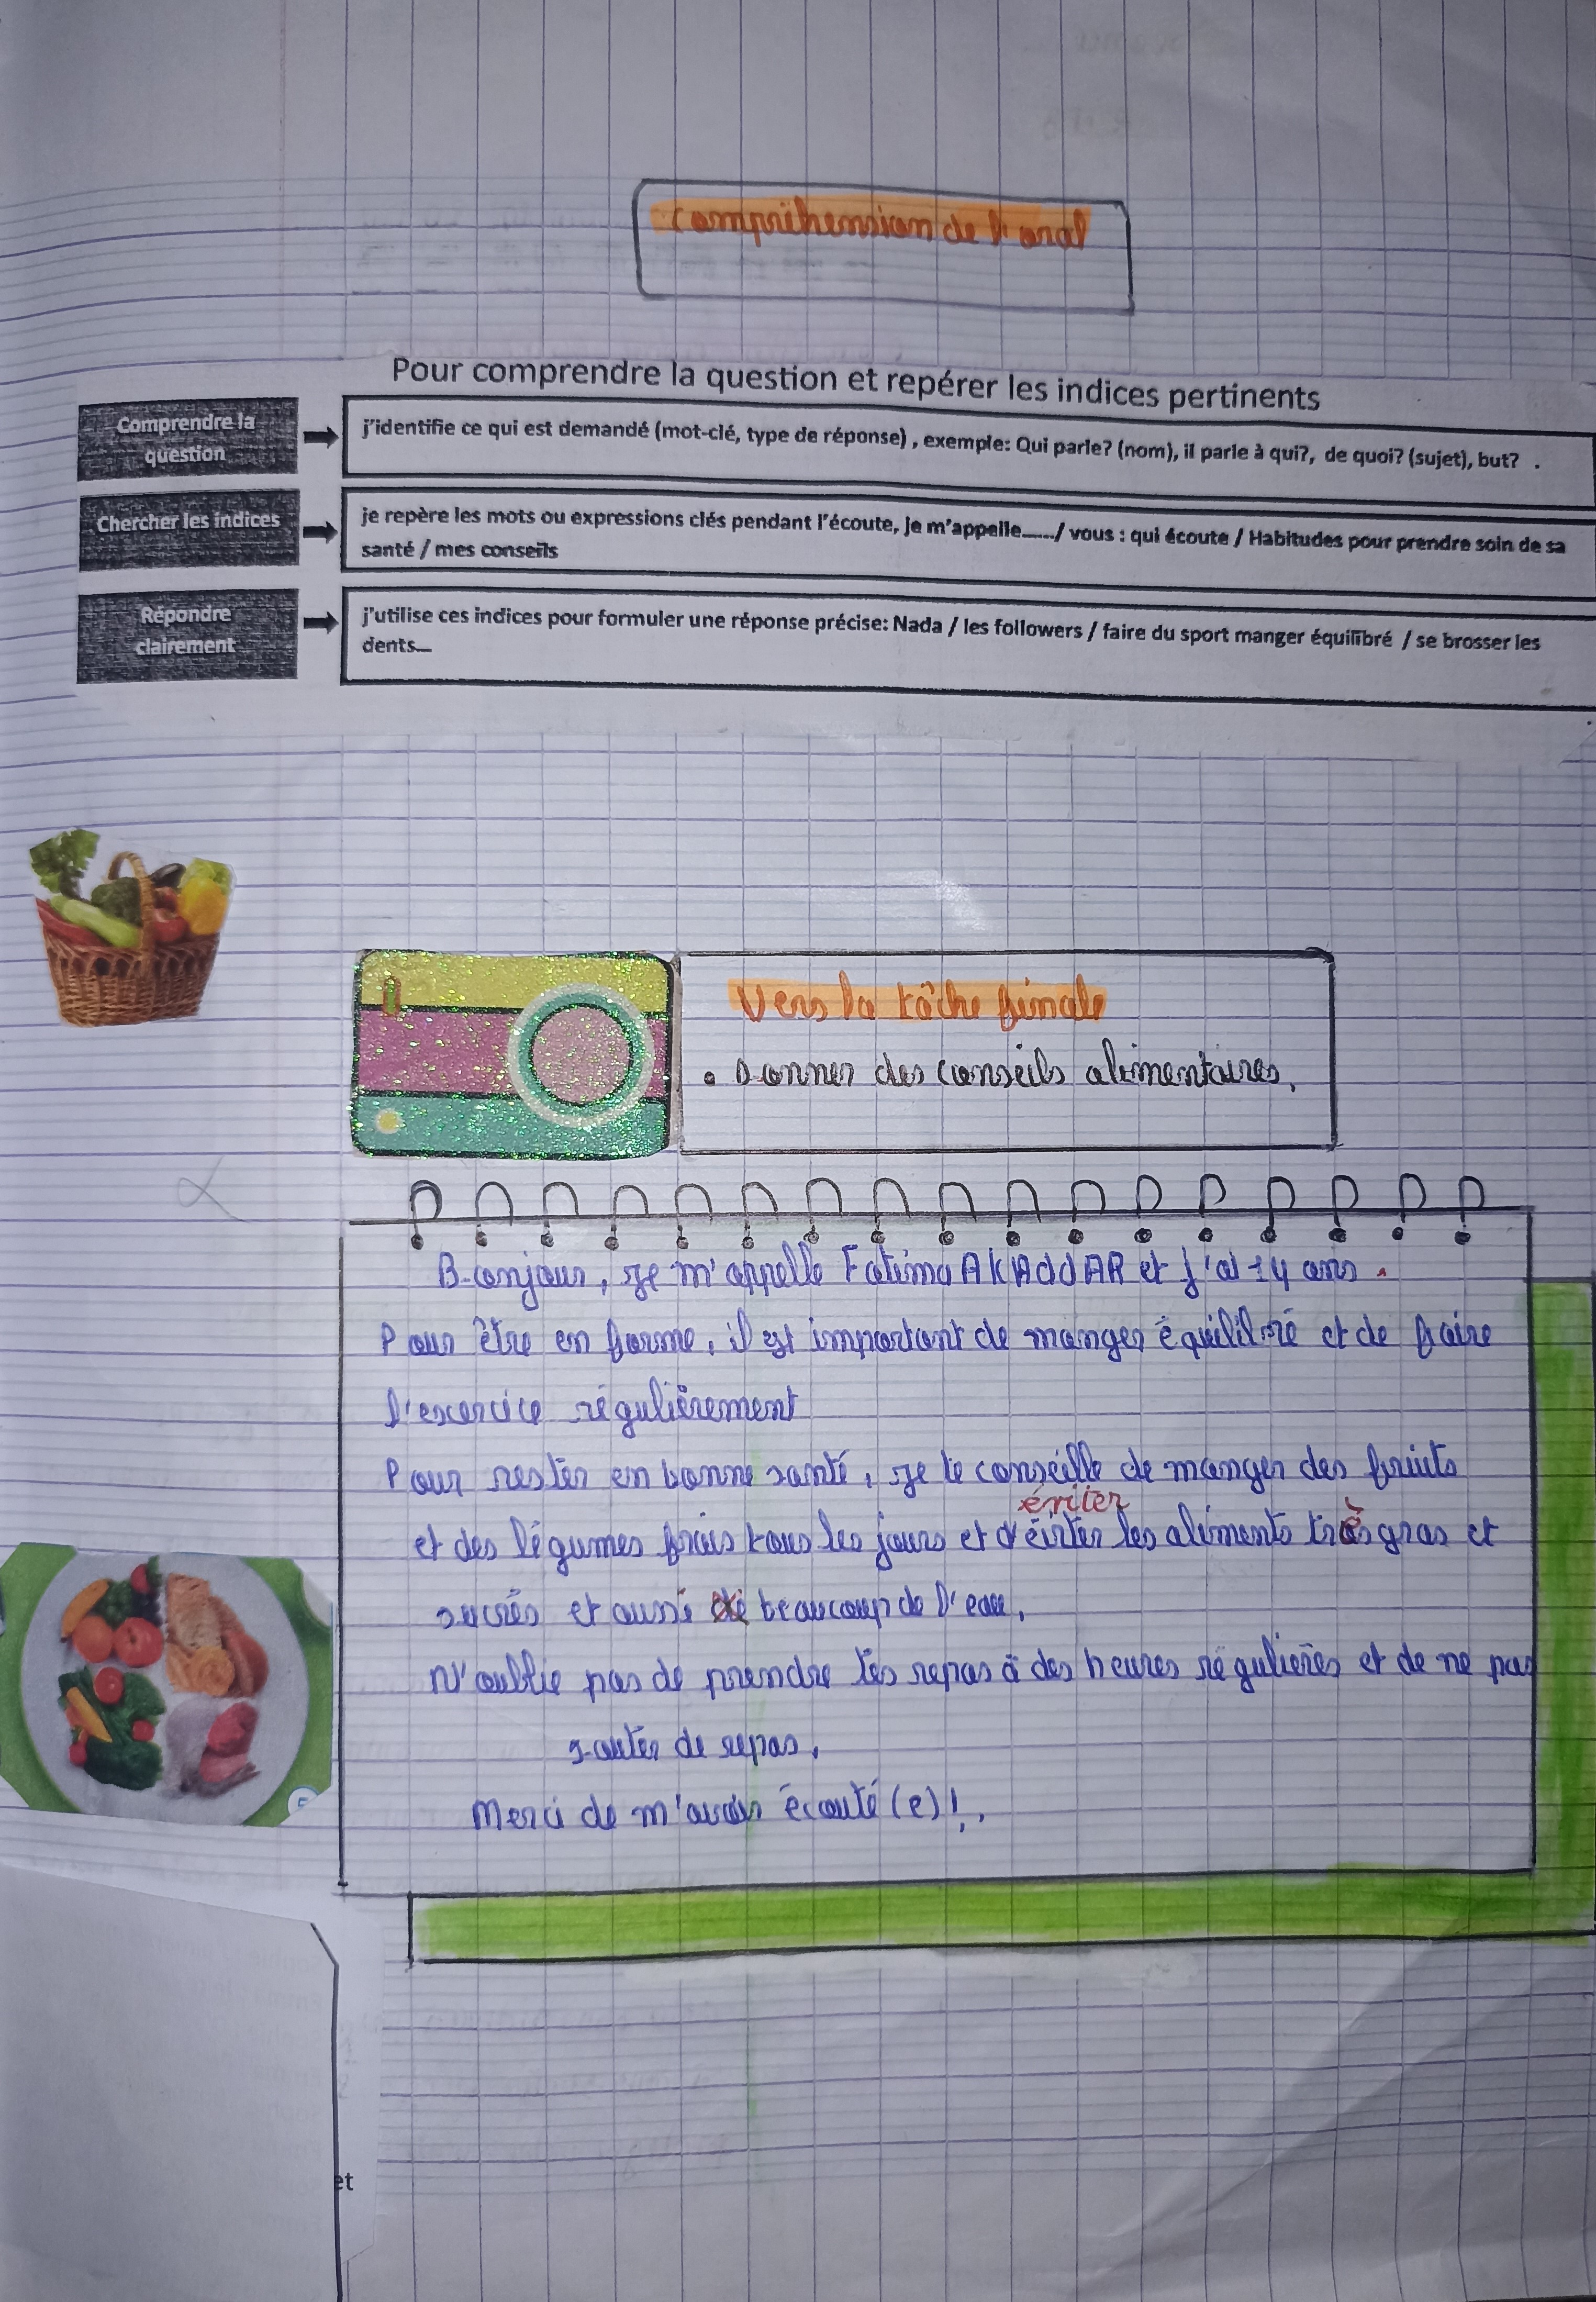 Compréhension de l'oral
Pour comprendre la question et repérer les indices pertinents
Comprendre la
question
j'identifie ce qui est demandé (mot-clé, type de réponse) , exemple: Qui parle? (nom), il parle à qui?, de quoi? (sujet), but? .
Chercher les indices
je repère les mots ou expressions clés pendant l'écoute, Je m'appelle....../ vous : qui écoute / Habitudes pour prendre soin de sa
santé / mes conseils
Répondre
clairement
j'utilise ces indices pour formuler une réponse précise: Nada / les followers / faire du sport manger équilibré / se brosser les
dents...
Vers la tâche finale
• Donner des conseils alimentaires.
Bonjour, je m'appelle Fatima AKADDAR et j'ai 14 ans.
Pour être en forme, il est important de manger équilibré et de faire
l'exercice régulièrement
Pour rester en bonne santé, je te conseille de manger des fruits
éviter
et des légumes frais tous les jours et d'éviter les aliments très gras et
sucrés et aussi beaucoup de l'eau.
N'oublie pas de prendre tes repas à des heures régulières et de ne pas
sauter de repas.
Merci de m'avoir écouté(e)!
et